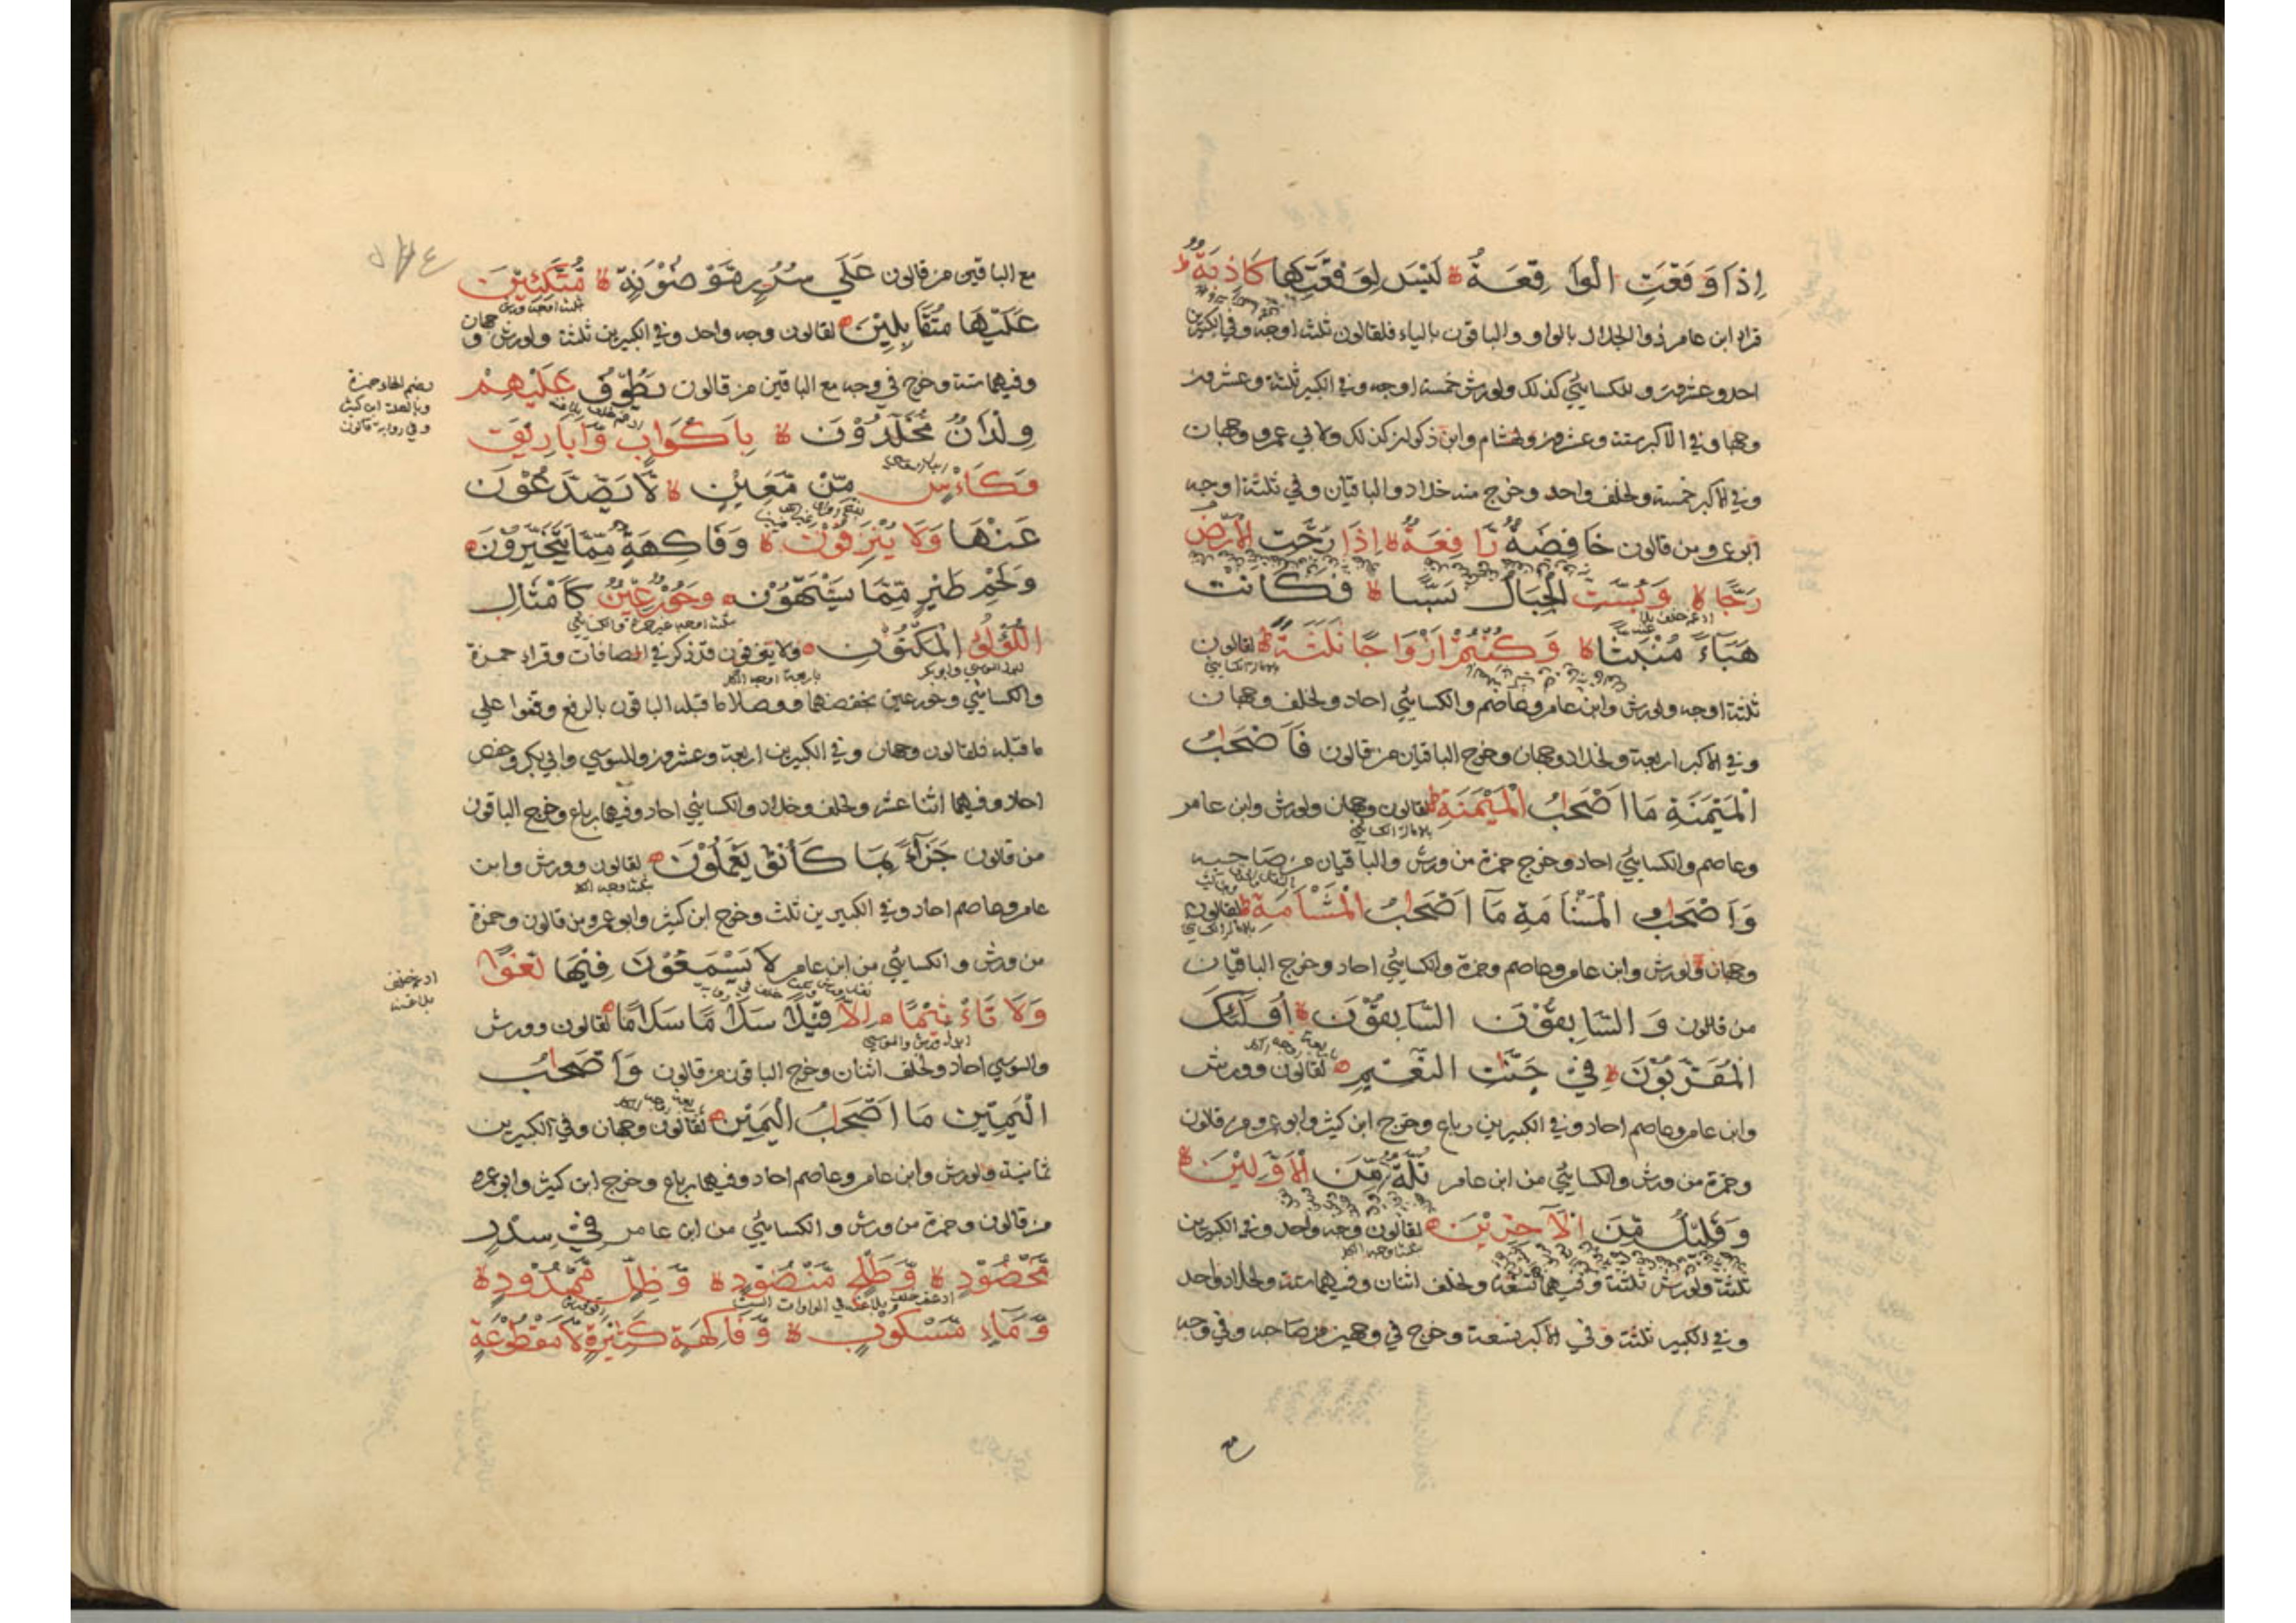 اِذَا وَقَعَتِ الْوَاقِعَةُ لَيْسَ لِوَقْعَتِهَا كَاذِبَةٌ
قراء ابن عامر ذو الجلال بالواو والباقون بالياء فلقالون ثلثة اوجه وفي الكبيرين
احد وعشرون وللكسائي كذلك ولورش خمسة اوجه وفي الكبير ثلثة وعشرون
وجها وفي الاكبر ستة وعشرون ولهشام وابن ذكوان كذلك ولابي عمرو وجهان
وفي الاكبر خمسة ولخلف واحد وخرج منه خلاد والباقيان وفي ثلثة اوجه
ابو عمرو من قالون خَافِضَةٌ رَافِعَةٌ اِذَا رُجَّتِ الْاَرْضُ
رَجًّا وَبُسَّتِ الْجِبَالُ بَسًّا فَكَانَتْ
هَبَاءً مُنْبَثًّا وَكُنْتُمْ اَزْوَاجًا ثَلٰثَةً لقالون
ثلثة اوجه ولورش وابن عامر وعاصم والكسائي احاد ولخلف وجهان
وفي الاكبر اربعة ولخلاد وجهان وخرج الباقيان من قالون فَاَصْحٰبُ
الْمَيْمَنَةِ مَا اَصْحٰبُ الْمَيْمَنَةِ لقالون وجهان ولورش وابن عامر
وعاصم والكسائي احاد وخرج حمزة من ورش والباقيان من صاحبيه
وَاَصْحٰبُ الْمَشْاَمَةِ مَا اَصْحٰبُ الْمَشْاَمَةِ لقالون
وجهان ولورش وابن عامر وعاصم وحمزة والكسائي احاد وخرج الباقيان
من قالون وَالسَّابِقُوْنَ السَّابِقُوْنَ اُولٰئِكَ
الْمُقَرَّبُوْنَ فِيْ جَنّٰتِ النَّعِيْمِ لقالون وورش
وابن عامر وعاصم احاد وفي الكبيرين رباع وخرج ابن كثير وابو عمرو من قالون
وحمزة من ورش والكسائي من ابن عامر ثُلَّةٌ مِّنَ الْاَوَّلِيْنَ
وَقَلِيْلٌ مِّنَ الْاٰخِرِيْنَ لقالون وجه واحد وفي الكبيرين
ثلثة ولورش ثلثة وفيهما تسعة ولخلف اثنان وفيهما ستة ولخلاد واحد
وفي الكبير ثلثة وفي الاكبر تسعة وخرج في وجهين من صاحبه وفي وجه
مع الباقين من قالون عَلٰى سُرُرٍ مَّوْضُوْنَةٍ مُتَّكِئِيْنَ
عَلَيْهَا مُتَقَابِلِيْنَ لقالون وجه واحد وفي الكبيرين ثلثة ولورش وجهان
وفيهما ستة وخرج في وجه مع الباقين من قالون يَطُوْفُ عَلَيْهِمْ
وِلْدَانٌ مُّخَلَّدُوْنَ بِاَكْوَابٍ وَّاَبَارِيْقَ
وَكَاْسٍ مِّنْ مَّعِيْنٍ لَّا يُصَدَّعُوْنَ
عَنْهَا وَلَا يُنْزِفُوْنَ وَفَاكِهَةٍ مِّمَّا يَتَخَيَّرُوْنَ
وَلَحْمِ طَيْرٍ مِّمَّا يَشْتَهُوْنَ وَحُوْرٌ عِيْنٌ كَاَمْثَالِ
اللُّؤْلُؤِ الْمَكْنُوْنِ ولا ينزفون قد ذكر في الصافات وقراء حمزة
والكسائي وحور عين بخفضهما ووصلا ما قبله الباقون بالرفع وقفوا على
ما قبله فلقالون وجهان وفي الكبيرين اربعة وعشرون وللسوسي وابي بكر وحفص
احاد وفيهما اثنا عشر ولخلف وخلاد والكسائي احاد وفيهما رباع وخرج الباقون
من قالون جَزَآءً بِمَا كَانُوْا يَعْمَلُوْنَ لقالون وورش وابن
عامر وعاصم احاد وفي الكبيرين ثلث وخرج ابن كثير وابو عمرو من قالون وحمزة
من ورش والكسائي من ابن عامر لَا يَسْمَعُوْنَ فِيْهَا لَغْوًا
وَلَا تَاْثِيْمًا اِلَّا قِيْلًا سَلَامًا سَلَامًا لقالون وورش
والسوسي احاد ولخلف اثنان وخرج الباقون من قالون وَاَصْحٰبُ
الْيَمِيْنِ مَا اَصْحٰبُ الْيَمِيْنِ لقالون وجهان وفي الكبيرين
ثمانية ولورش وابن عامر وعاصم احاد وفيهما رباع وخرج ابن كثير وابو عمرو
من قالون وحمزة من ورش والكسائي من ابن عامر فِيْ سِدْرٍ
مَّخْضُوْدٍ وَّطَلْحٍ مَّنْضُوْدٍ وَّظِلٍّ مَّمْدُوْدٍ
وَّمَآءٍ مَّسْكُوْبٍ وَّفَاكِهَةٍ كَثِيْرَةٍ لَّا مَقْطُوْعَةٍ
بضم الهاء حمزة
وبالصلة ابن كثير
وفي رواية قالون
ادغم خلف
بلا غنة